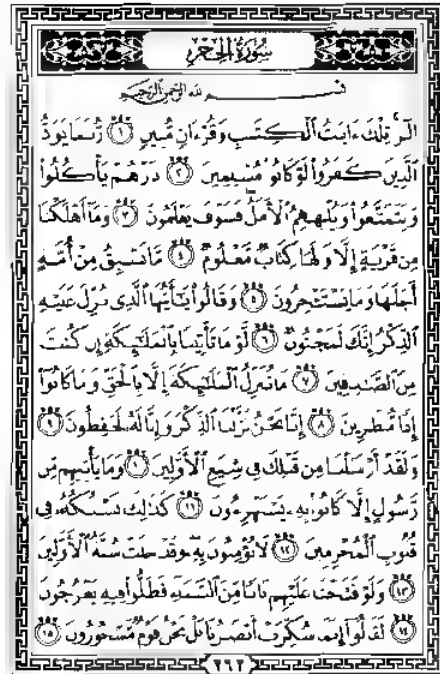 سُورَةُ الْحِجْرِ
بِسْمِ اللَّهِ الرَّحْمَٰنِ الرَّحِيمِ
الٓر ۚ تِلْكَ ءَايَٰتُ ٱلْكِتَٰبِ وَقُرْءَانٍ مُّبِينٍ ١ رُّبَمَا يَوَدُّ
ٱلَّذِينَ كَفَرُوا۟ لَوْ كَانُوا۟ مُسْلِمِينَ ٢ ذَرْهُمْ يَأْكُلُوا۟
وَيَتَمَتَّعُوا۟ وَيُلْهِهِمُ ٱلْأَمَلُ فَسَوْفَ يَعْلَمُونَ ٣ وَمَآ أَهْلَكْنَا
مِن قَرْيَةٍ إِلَّا وَلَهَا كِتَابٌ مَّعْلُومٌ ٤ مَّا تَسْبِقُ مِنْ أُمَّةٍ
أَجَلَهَا وَمَا يَسْتَـْٔخِرُونَ ٥ وَقَالُوا۟ يَٰٓأَيُّهَا ٱلَّذِى نُزِّلَ عَلَيْهِ
ٱلذِّكْرُ إِنَّكَ لَمَجْنُونٌ ٦ لَّوْ مَا تَأْتِينَا بِٱلْمَلَٰٓئِكَةِ إِن كُنتَ
مِنَ ٱلصَّٰدِقِينَ ٧ مَا نُنَزِّلُ ٱلْمَلَٰٓئِكَةَ إِلَّا بِٱلْحَقِّ وَمَا كَانُوٓا۟
إِذًا مُّنظَرِينَ ٨ إِنَّا نَحْنُ نَزَّلْنَا ٱلذِّكْرَ وَإِنَّا لَهُۥ لَحَٰفِظُونَ ٩
وَلَقَدْ أَرْسَلْنَا مِن قَبْلِكَ فِى شِيَعِ ٱلْأَوَّلِينَ ١٠ وَمَا يَأْتِيهِم مِّن
رَّسُولٍ إِلَّا كَانُوا۟ بِهِۦ يَسْتَهْزِءُونَ ١١ كَذَٰلِكَ نَسْلُكُهُۥ فِى
قُلُوبِ ٱلْمُجْرِمِينَ ١٢ لَا يُؤْمِنُونَ بِهِۦ ۖ وَقَدْ خَلَتْ سُنَّةُ ٱلْأَوَّلِينَ
١٣ وَلَوْ فَتَحْنَا عَلَيْهِم بَابًا مِّنَ ٱلسَّمَآءِ فَظَلُّوا۟ فِيهِ يَعْرُجُونَ
١٤ لَقَالُوٓا۟ إِنَّمَا سُكِّرَتْ أَبْصَٰرُنَا بَلْ نَحْنُ قَوْمٌ مَّسْحُورُونَ ١٥
٢٦٢